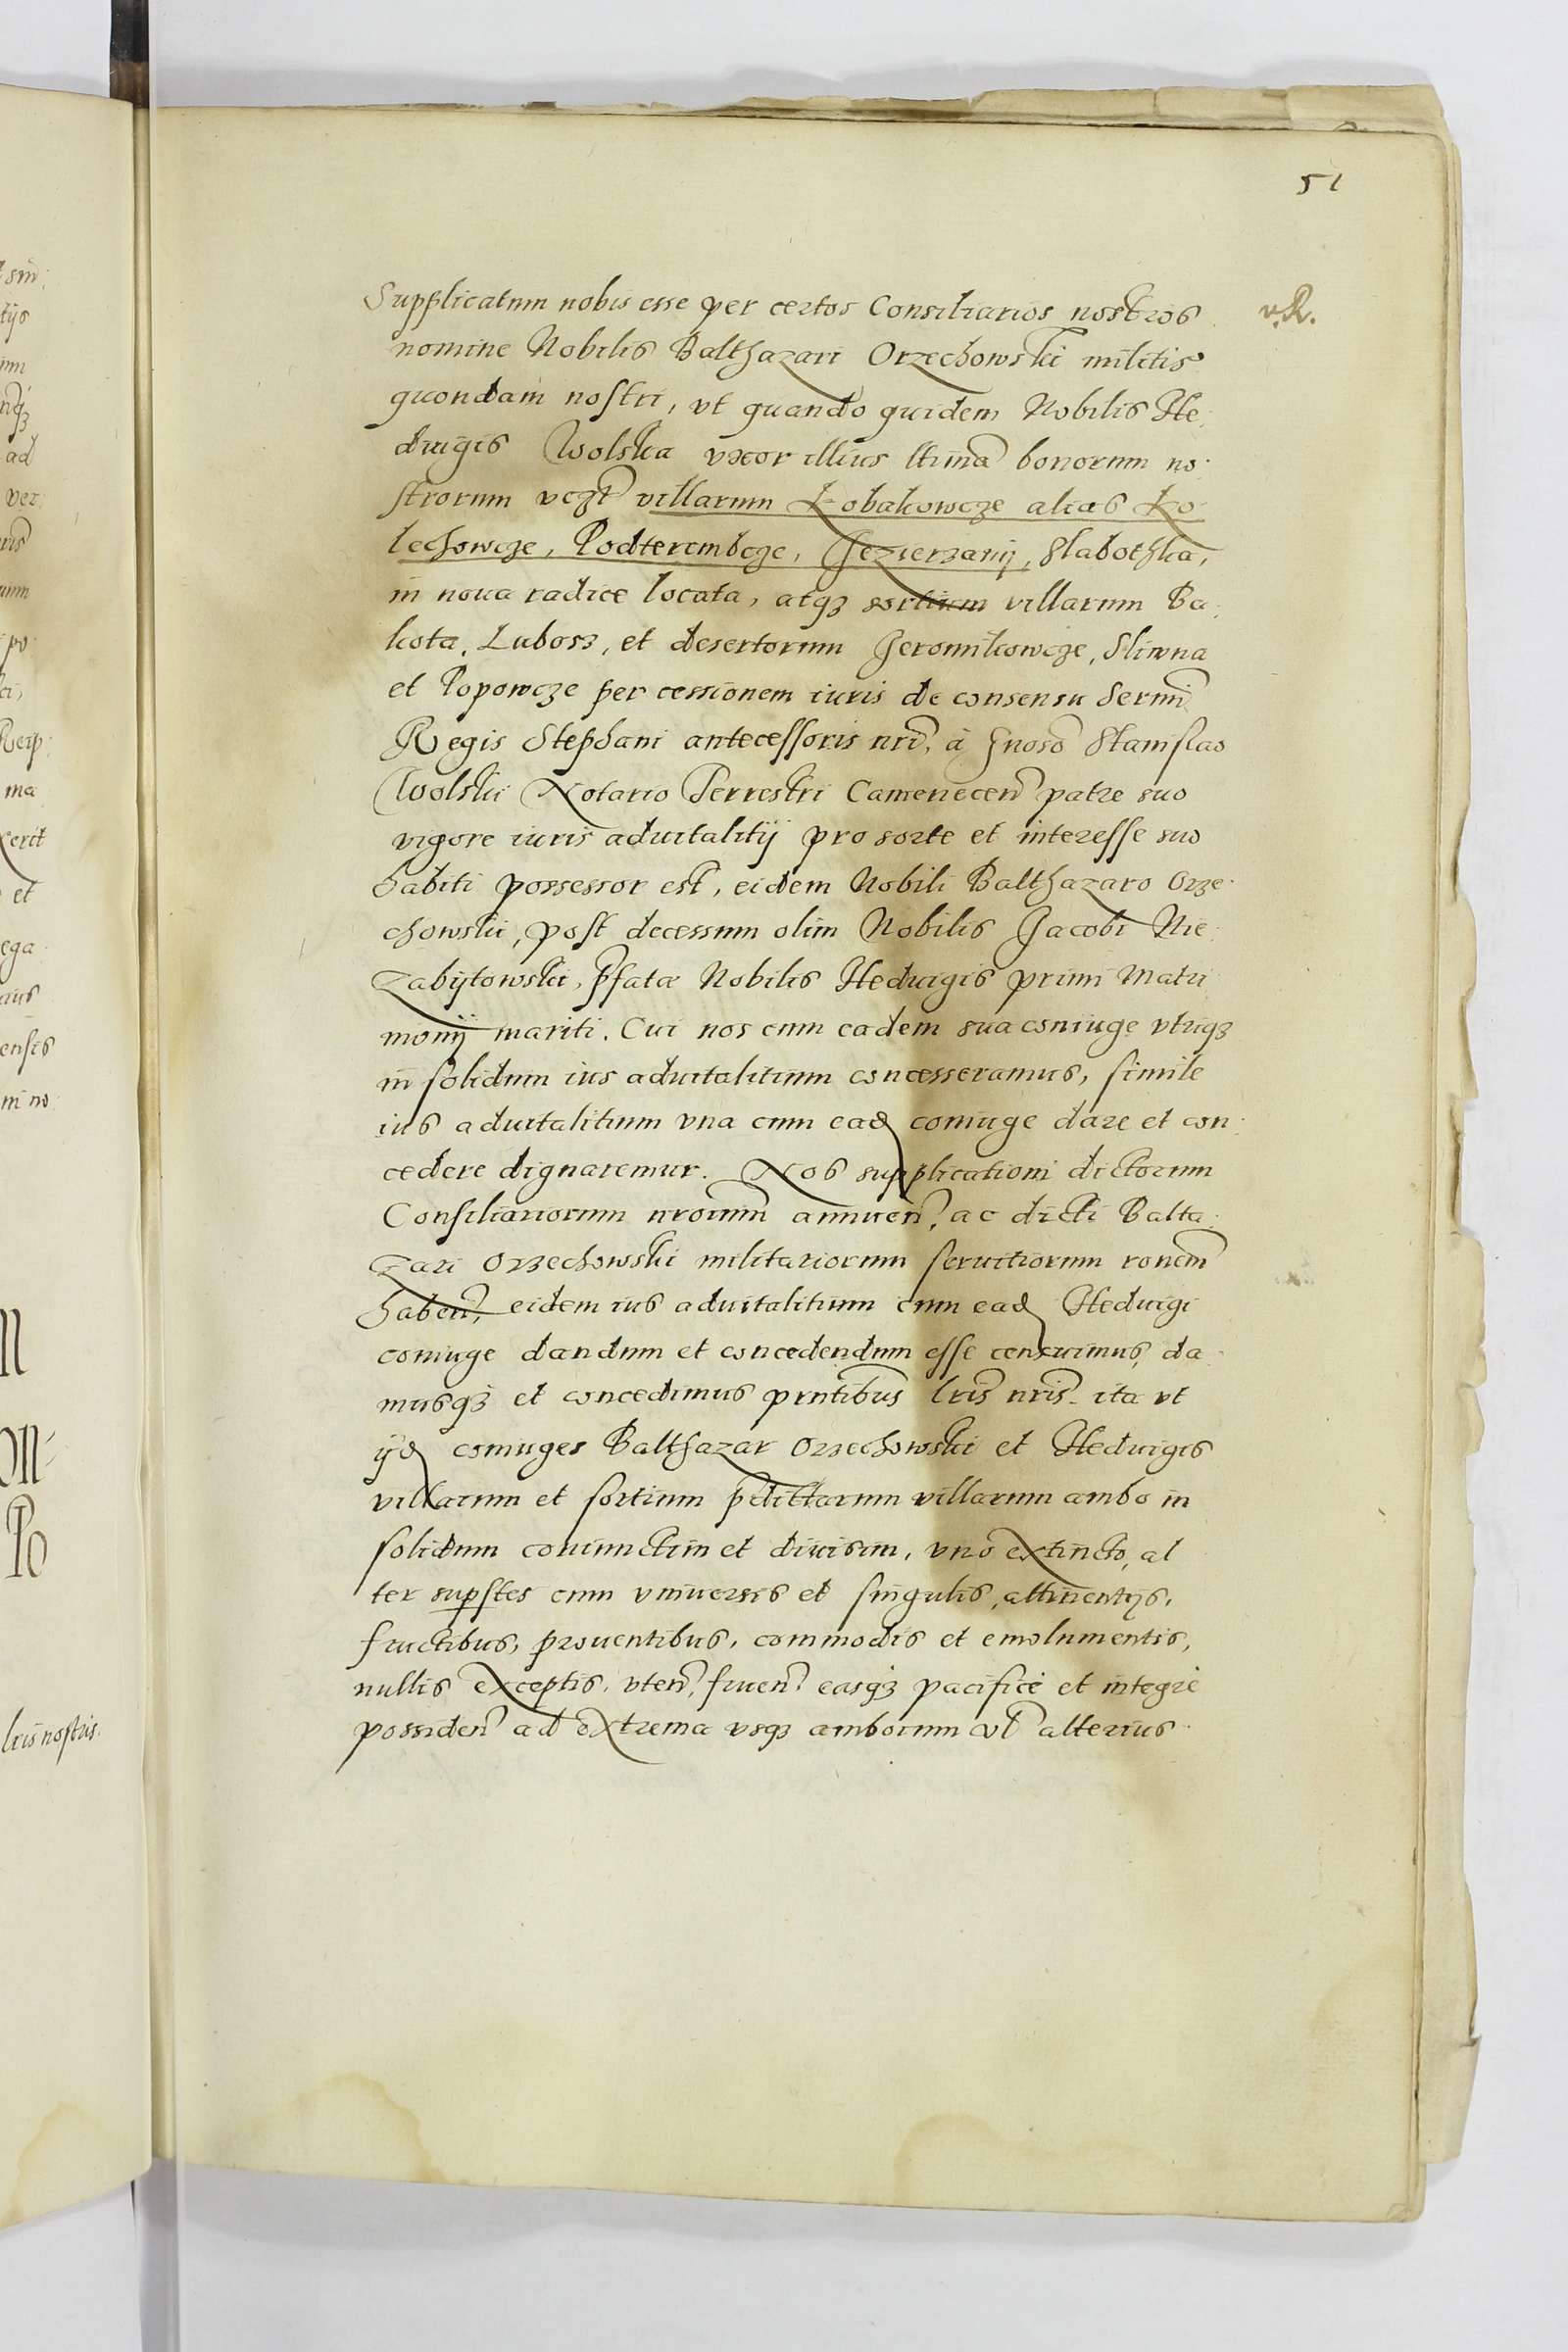 51
Supplicatum nobis esse per certos Consiliarios nostros
v. R.
nomine Nobilis Balthazari Orzechowski militis
quondam nostri, vt quando quidem Nobilis He-
duigis Wolska vxor illius ltima bonorum no-
strorum vczt villarum Łobakowcze alias Ło-
lechowcze, Podterembcze, Jezierzanij, Slabothka,
in noua radice locata, atqz sortium villarum Ba-
kota, Lubosz, et desertorum Jeromkowcze, Sliwna
et Popowcze per cessionem iuris de consensu Sermi
Regis Stephani antecessoris nri, à Gnoso Stanislao
Wolski Notario Terrestri Camenecen patre suo
vigore iuris aduitalitij pro sorte et interesse suo
habiti possessor est, eidem Nobili Balthazaro Orze-
chowski, post decessum olim Nobilis Jacobi Nie-
zabijtowski, pfatæ Nobilis Heduigis primi Matri
monij mariti. Cui nos cum eadem sua coniuge vtriqz
in solidum ius aduitalitium concesseramus, simile
ius aduitalitium vna cum ead coniuge dare et con-
cedere dignaremur. Nos supplicationi dictorum
Consiliariorum nrorum annuen, ac dicti Balta-
zari Orzechowski militariorum seruitiorum ronem
haben, eidem ius aduitalitium cum ead Heduigi
coniuge dandum et concedendum esse censuimus, da-
musqz et concedimus pntibus lris nris. ita vt
ijd coniuges Balthazar Orzechowski et Heduigis
villarum et sortium pdictarum villarum ambo in
solidum coniunctim et diuisim, vno extincto, al
ter supstes cum vniuersis et singulis, attinentijs,
fructibus, prouentibus, commodis et emolumentis,
nullis exceptis, vten, fruen, easqz pacificè et integrè
possiden ad extrema vsqz amborum vl alterius
lris nostris.